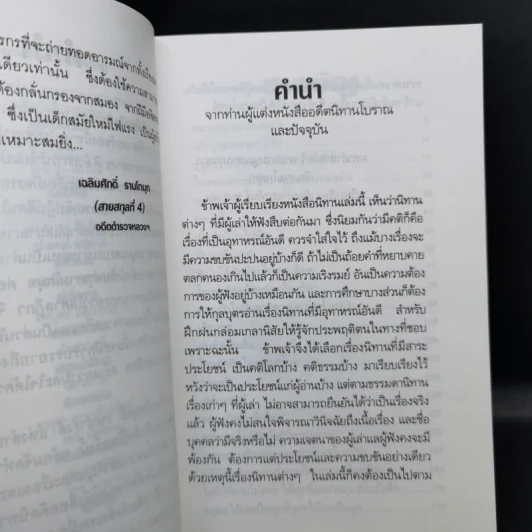 รกรที่จะถ่ายทอดอารมณ์จากทั้ง
เดียวเท่านั้น ซึ่งต้องใช้ความสามารถ
ต้องกลั่นกรองจากสมอง
ซึ่งเป็นเด็กสมัยใหม่ไฟแรง
เหมาะสมยิ่ง...
เฉลิมศักดิ์ รามโกมุท
(สายสกุลที่ 4)
อดีตตำรวจหลวงฯ
คำนำ
จากท่านผู้แต่งหนังสืออดีตนิทานโบราณ
และปัจจุบัน
ข้าพเจ้าผู้เรียบเรียงหนังสือนิทานเล่มนี้ เห็นว่านิทาน
ต่างๆ ที่มีผู้เล่าให้ฟังสืบต่อกันมา ซึ่งนิยมกันว่ามีคติก็คือ
เรื่องที่เป็นอุทาหรณ์อันดี ควรจำใส่ใจไว้ ถึงแม้บางเรื่องจะ
มีความขบขันปะปนอยู่บ้างก็ดี ถ้าไม่เป็นถ้อยคำที่หยาบคาย
ตลกคนองเกินไปแล้วก็เป็นความเริงรมย์ อันเป็นความต้อง
การของผู้ฟังอยู่บ้างเหมือนกัน และการศึกษาบางส่วนก็ต้อง
การให้กุลบุตรอ่านเรื่องนิทานที่มีอุทาหรณ์อันดี สำหรับ
ฝึกฝนกล่อมเกลานิสัยให้รู้จักประพฤติตนในทางที่ชอบ
เพราะฉะนั้น ข้าพเจ้าจึงได้เลือกเรื่องนิทานที่มีสาระ
ประโยชน์ เป็นคติโลกบ้าง คติธรรมบ้าง มาเรียบเรียงไว้
หวังว่าจะเป็นประโยชน์แก่ผู้อ่านบ้าง แต่ตามธรรมดานิทาน
เรื่องเก่าๆ ที่ผู้เล่า ไม่อาจสามารถยืนยันได้ว่าเป็นเรื่องจริง
แล้ว ผู้ฟังคงไม่สนใจพิจารณาวินิจฉัยถึงเนื้อเรื่อง และชื่อ
บุคคลว่ามีจริงหรือไม่ ความเจตนาของผู้เล่าแลผู้ฟังคงจะมี
พ้องกัน ต้องการแต่ประโยชน์และความขบขันอย่างเดียว
ด้วยเหตุนี้เรื่องนิทานต่างๆ ในเล่มนี้ก็คงต้องเป็นไปตาม